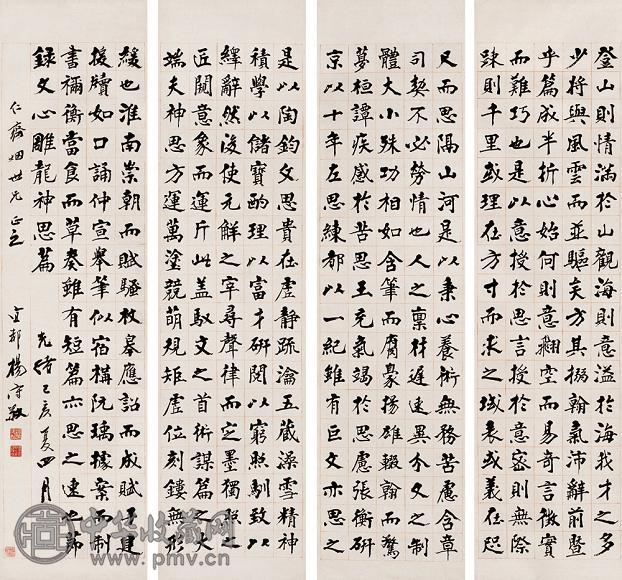 登山則情滿於山觀海則意溢於海我才之多
少將與風雲而並驅矣方其搦翰氣沛辭前暨
乎篇成半折心始何則意翻空而易奇言徵實
而難巧也是以意授於思言授於意密則無際
疎則千里或理在方寸而求之域表或義在咫
尺而思隔山河是以秉心養術無務苦慮含章
司契不必勞情也人之稟材遲速異分文之制
體大小殊功相如含筆而腐豪揚雄輟翰而驚
夢桓譚疾感於苦思王充氣竭於思慮張衡研
京以十年左思練都以一紀雖有巨文亦思之
是以陶鈞文思貴在虛靜疏瀹五藏澡雪精神
積學以儲寶酌理以富才研閱以窮照馴致以
繹辭然後使元解之宰尋聲律而定墨獨照之
匠闚意象而運斤此蓋馭文之首術謀篇之大
端夫神思方運萬塗競萌規矩虛位刻鏤無形
緩也淮南崇朝而賦騷枚皋應詔而成賦子建
援牘如口誦仲宣舉筆似宿構阮瑀據案而制
書禰衡當食而草奏雖有短篇亦思之速也節
錄文心雕龍神思篇 光緒己亥夏四月
仁齋姻世兄正之 宜都楊守敬
中华收藏网
www.pmv.cn